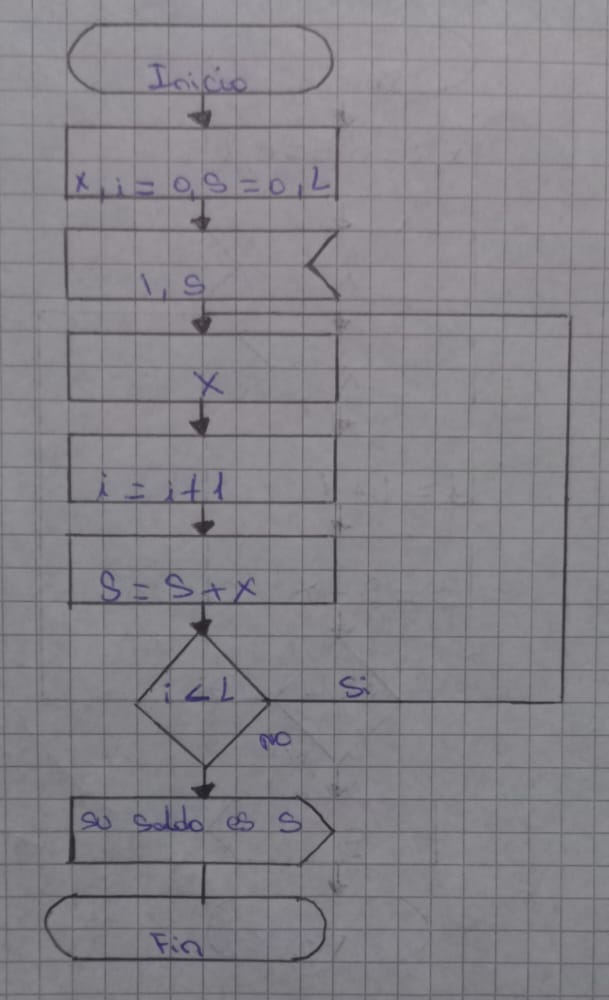 Inicio
x, i = 0, S = 0, L
1, S
X
i = i + 1
S = S + X
i < L
Si
no
su saldo es S
Fin